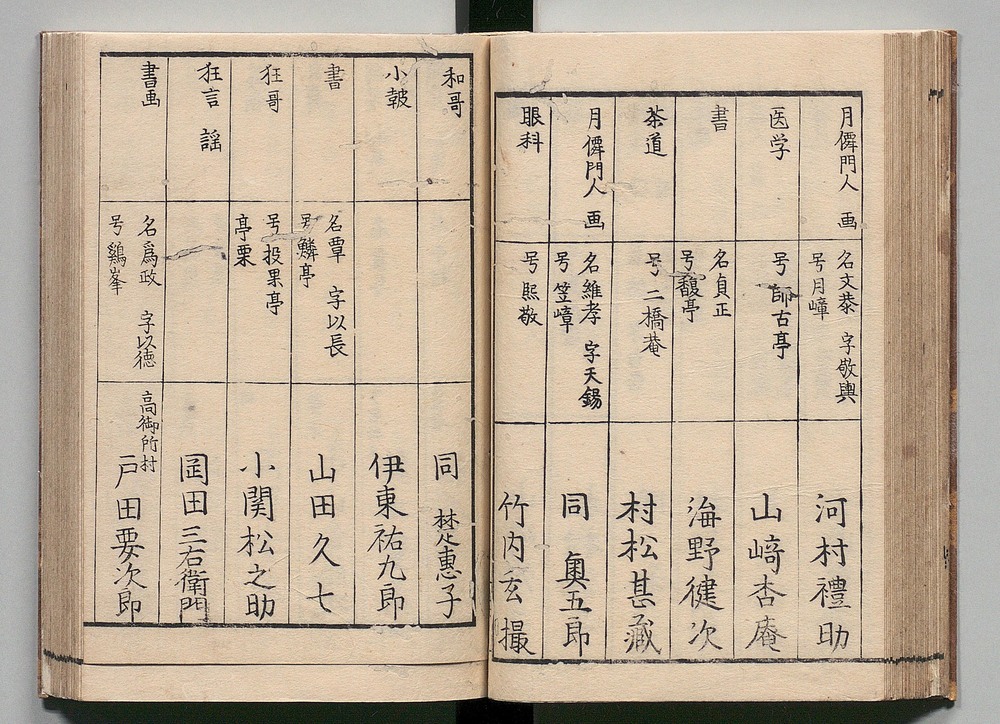 月僊門人 画
名文恭 字敬輿
号月嶂
河村禮助
医学
号師古亭
山﨑杏庵
書
名貞正
号馥亭
海野健次
茶道
号二橋菴
村松甚藏
月僊門人 画
名維孝 字天錫
号笠嶂
同 奥五郎
眼科
号熙敬
竹内玄撮
和哥
同 楚惠子
小皷
伊東祐九郎
書
名覃 字以長
号鱗亭
山田久七
狂哥
号投果亭
亭栗
小関松之助
狂言 謡
岡田三右衛門
書画
名爲政 字以徳
号鷄峯
高御所村
戸田要次郎